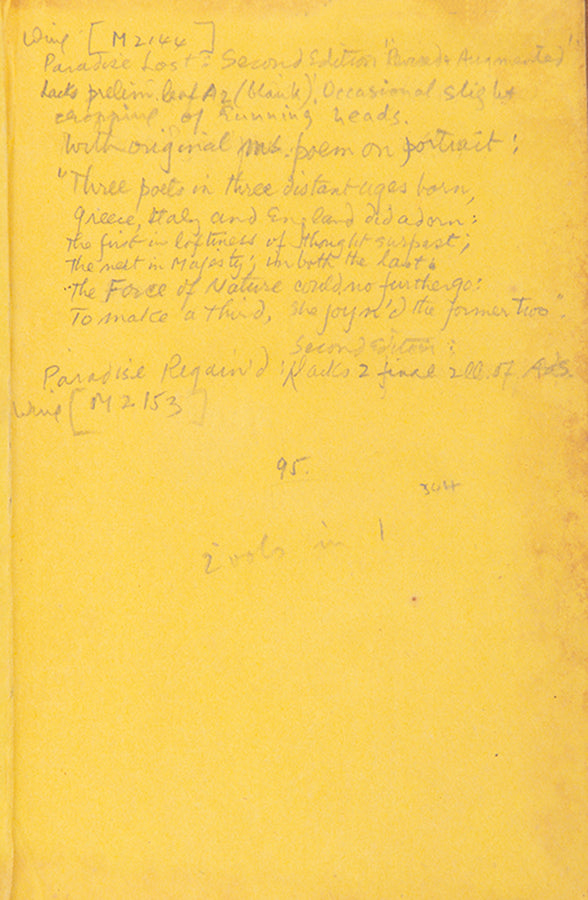 Wing [M 2144]
Paradise Lost: Second Edition "Revised & Augmented"
Lacks prelim. leaf A2 (blank). Occasional slight
cropping of running heads.
With original ms. poem on portrait:
"Three poets in three distant ages born,
Greece, Italy and England did adorn:
The first in loftiness of thought surpast;
The next in Majesty; in both the last:
The Force of Nature could no further go:
To make a third, she joyn'd the former two".
Second Edition:
Paradise Regain'd lacks 2 final ll. of Ads.
Wing [M 2153]
95.
2 vols in 1